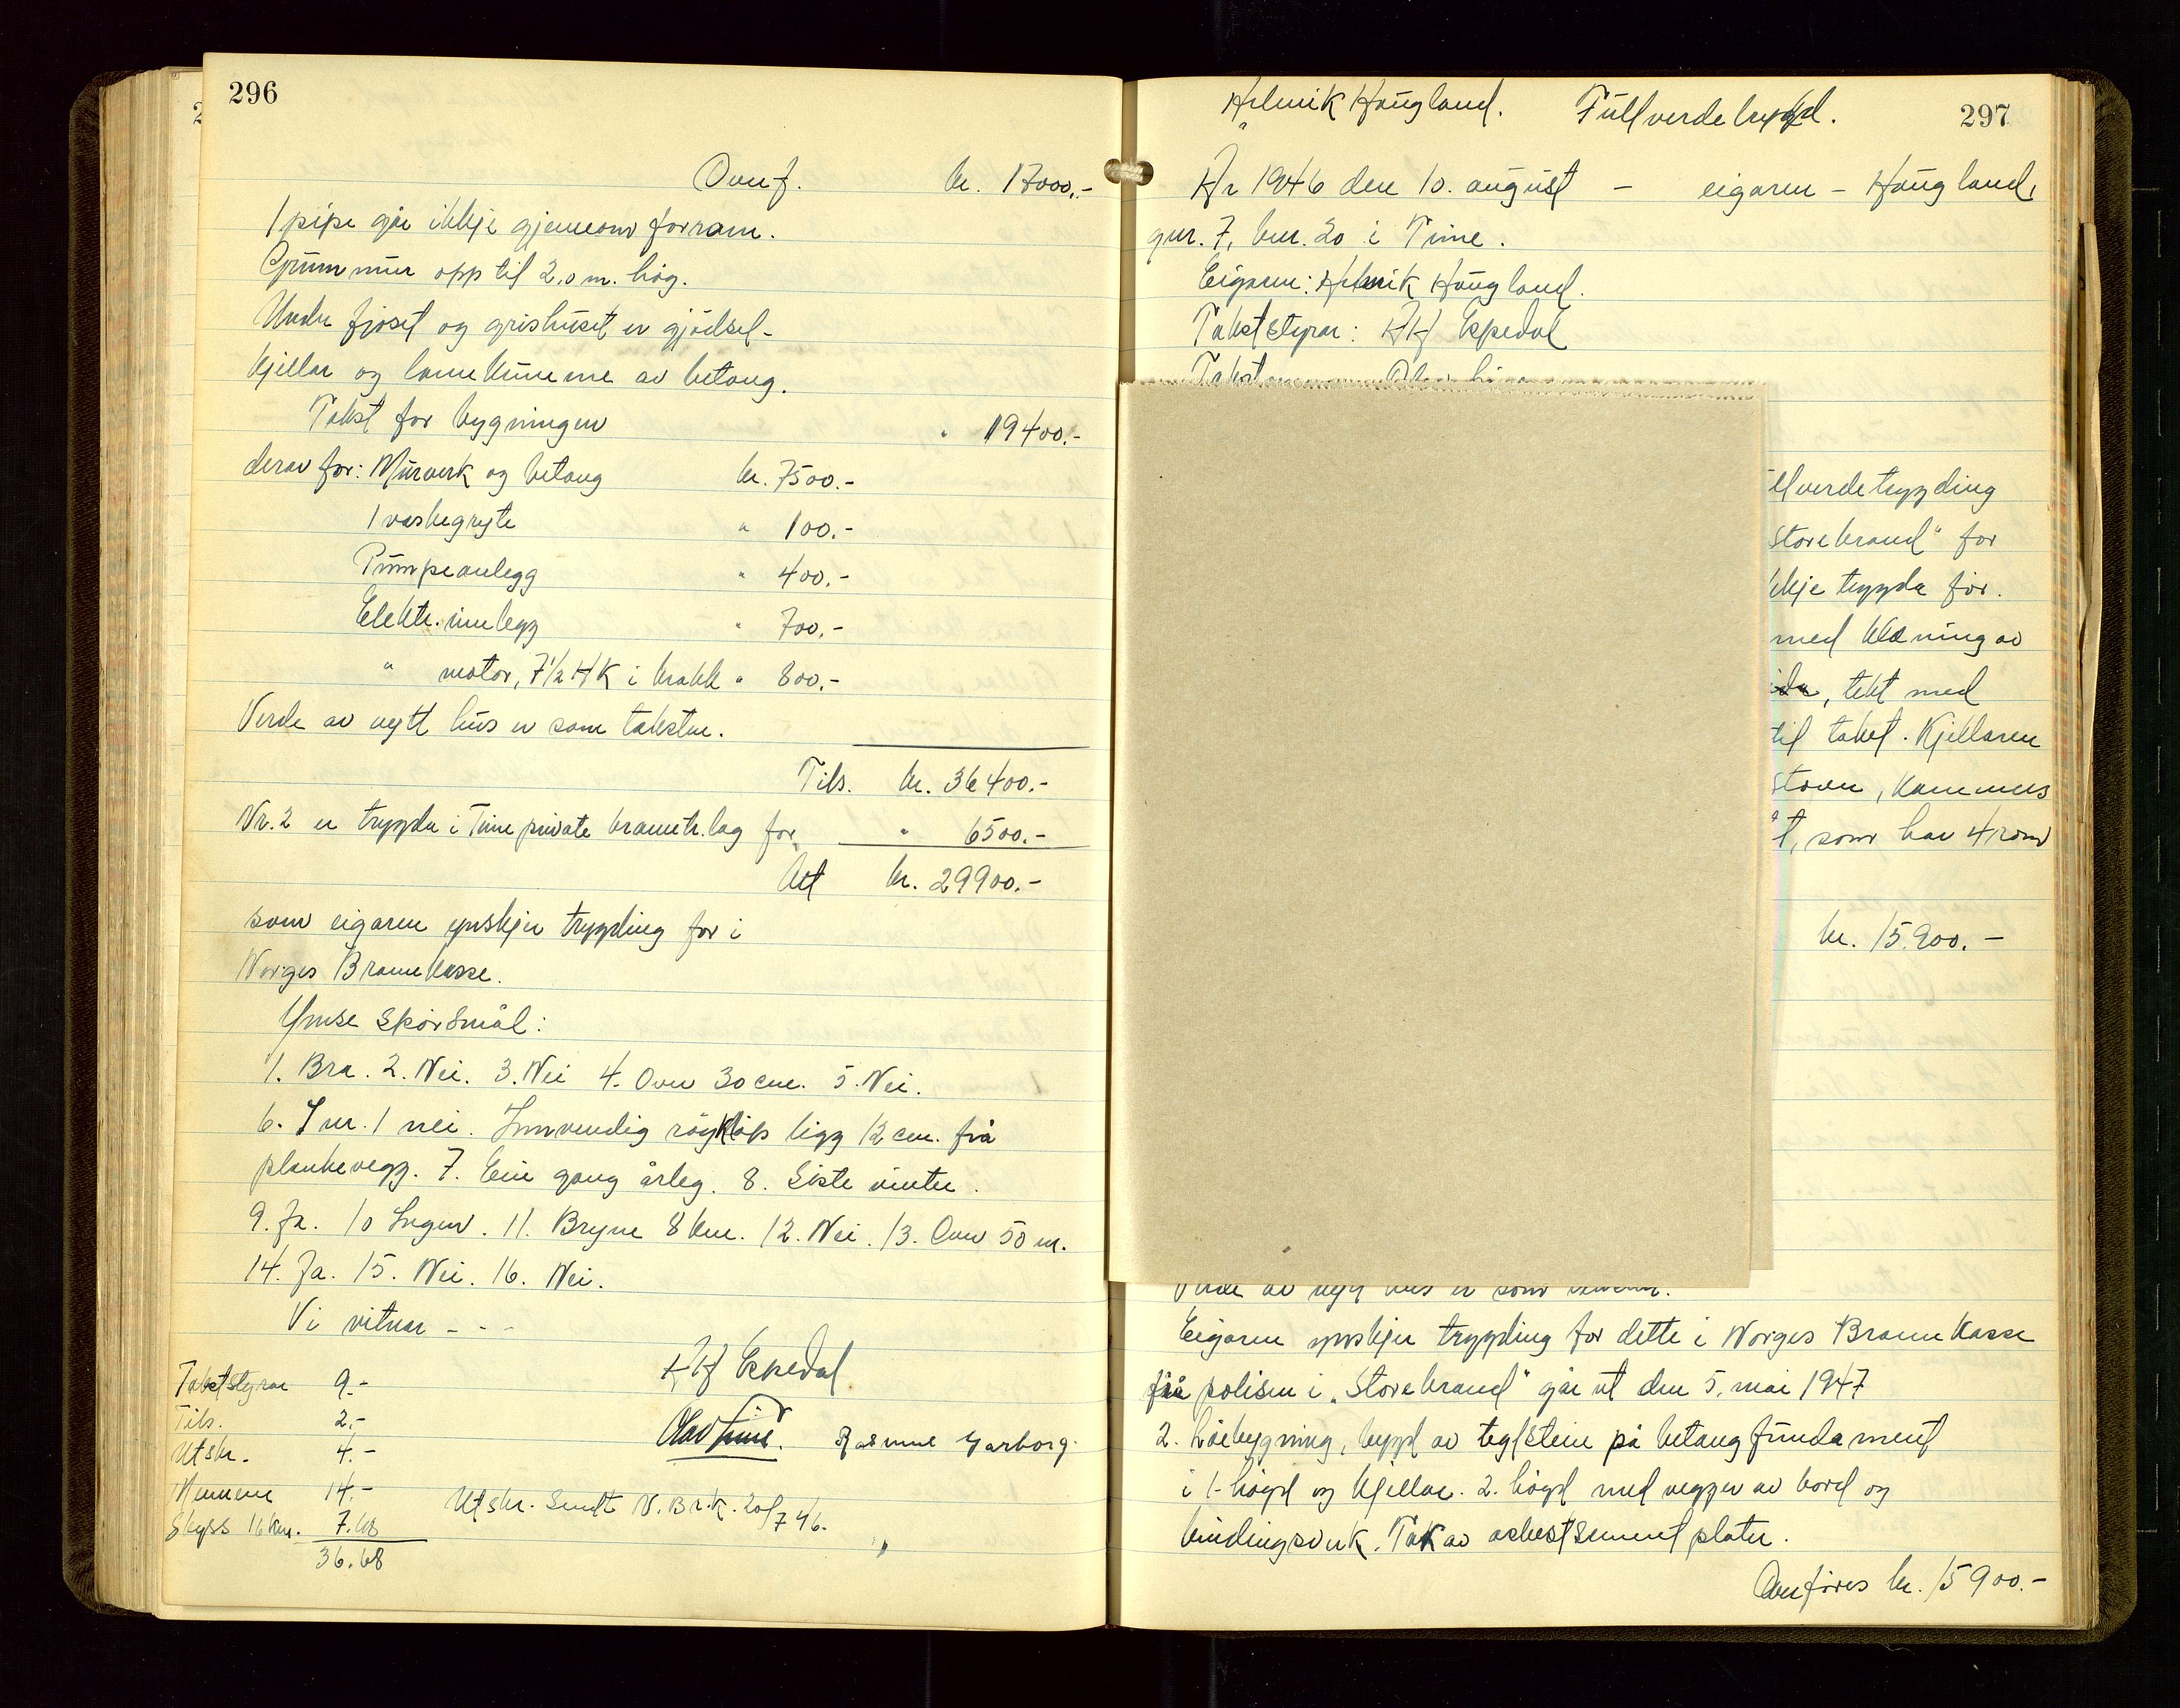 296
Overf. kr. 17000.-
1 pipe går ikkje gjennom forram.
Grunnmur opp til 2,0 m. høg.
Under fjøset og grishuset er gjødsel-
kjellar og lannkumme av betong.
Takst for bygningen " 19400.-
derav for: Murverk og betong kr. 7500.-
1 vaskegryte " 100.-
Pumpeanlegg " 400.-
Elektr. innlegg " 700.-
" motor, 7½ HK i krakk " 800.-
Verde av nytt hus er som taksten.
Tils. kr. 36400.-
Nr. 2 er trygda i Time private branntr.lag for " 6500.-
Att kr. 29900.-
som eigaren ynskjer trygding for i
Norges Brannkasse.
Ymse spørsmål:
1. Bra. 2. Nei. 3. Nei 4. Over 30 cm. 5. Nei.
6. I nr. 1 nei. Innvendig røykløp ligg 12 cm. frå
plankevegg. 7. Ein gong årleg. 8. Siste vinter.
9. Ja. 10 Ingen. 11. Bryne 8 km. 12. Nei. 13. Over 50 m.
14. Ja. 15. Nei. 16. Nei.
Vi vitnar - - -
Takststyrar 9.-
Tils. 2.-
Utskr. 4.-
Mennene 14.-
Skyss 16 km. 7.68
36.68
Espedal
Olav Time. Rasmus Garborg.
Utskr. Sendt N.Br.K. 20/7 46.
Helmik Haugland. Fullverdetrygd. 297
År 1946 den 10. august - eigaren - Haugland,
gnr. 7, bnr. 20 i Time.
Eigaren: Helmik Haugland.
Takststyrar: Espedal
llverdetrygding
Storebrand" for
kkje trygda før.
med kledning av
, tekt med
til taket. Kjellaren
stover, kammers
t, som har 4 rom
kr. 15.900.-
Verde av nytt hus er som taksten.
Eigaren ynskjer trygding for dette i Norges Brannkasse
frå polisen i „Storebrand" går ut den 5. mai 1947
2. Løebygning, bygd av teglstein på betongfundament
i 1. høgd og kjellar. 2. høgd med vegger av bord og
bindingsverk. Tak av asbestsementplater.
Overføres kr. 15900.-